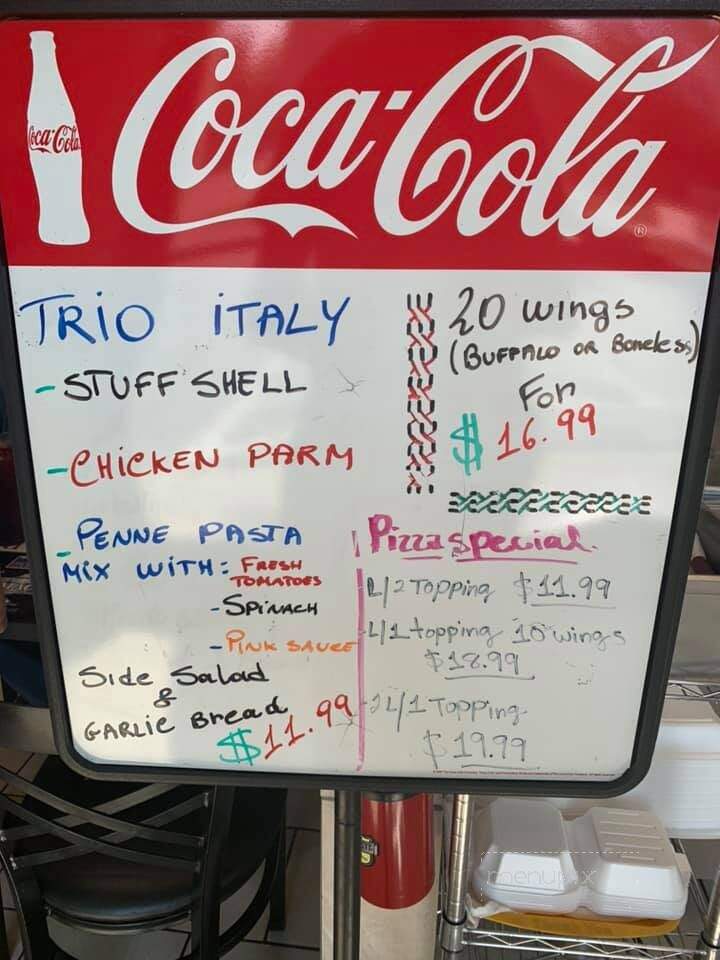 Coca-Cola
Coca-Cola
®
TRIO ITALY
- STUFF SHELL
- CHICKEN PARM
- PENNE PASTA
MIX WITH: FRESH
TOMATOES
- SPINACH
- PINK SAUCE
Side Salad
&
GARLIC Bread
$11.99
20 wings
(BUFFALO OR Boneless)
For
$16.99
Pizza special
L/2 Topping $11.99
L/1 topping 10 wings
$18.99
2 L/1 Topping
$19.99
menupix